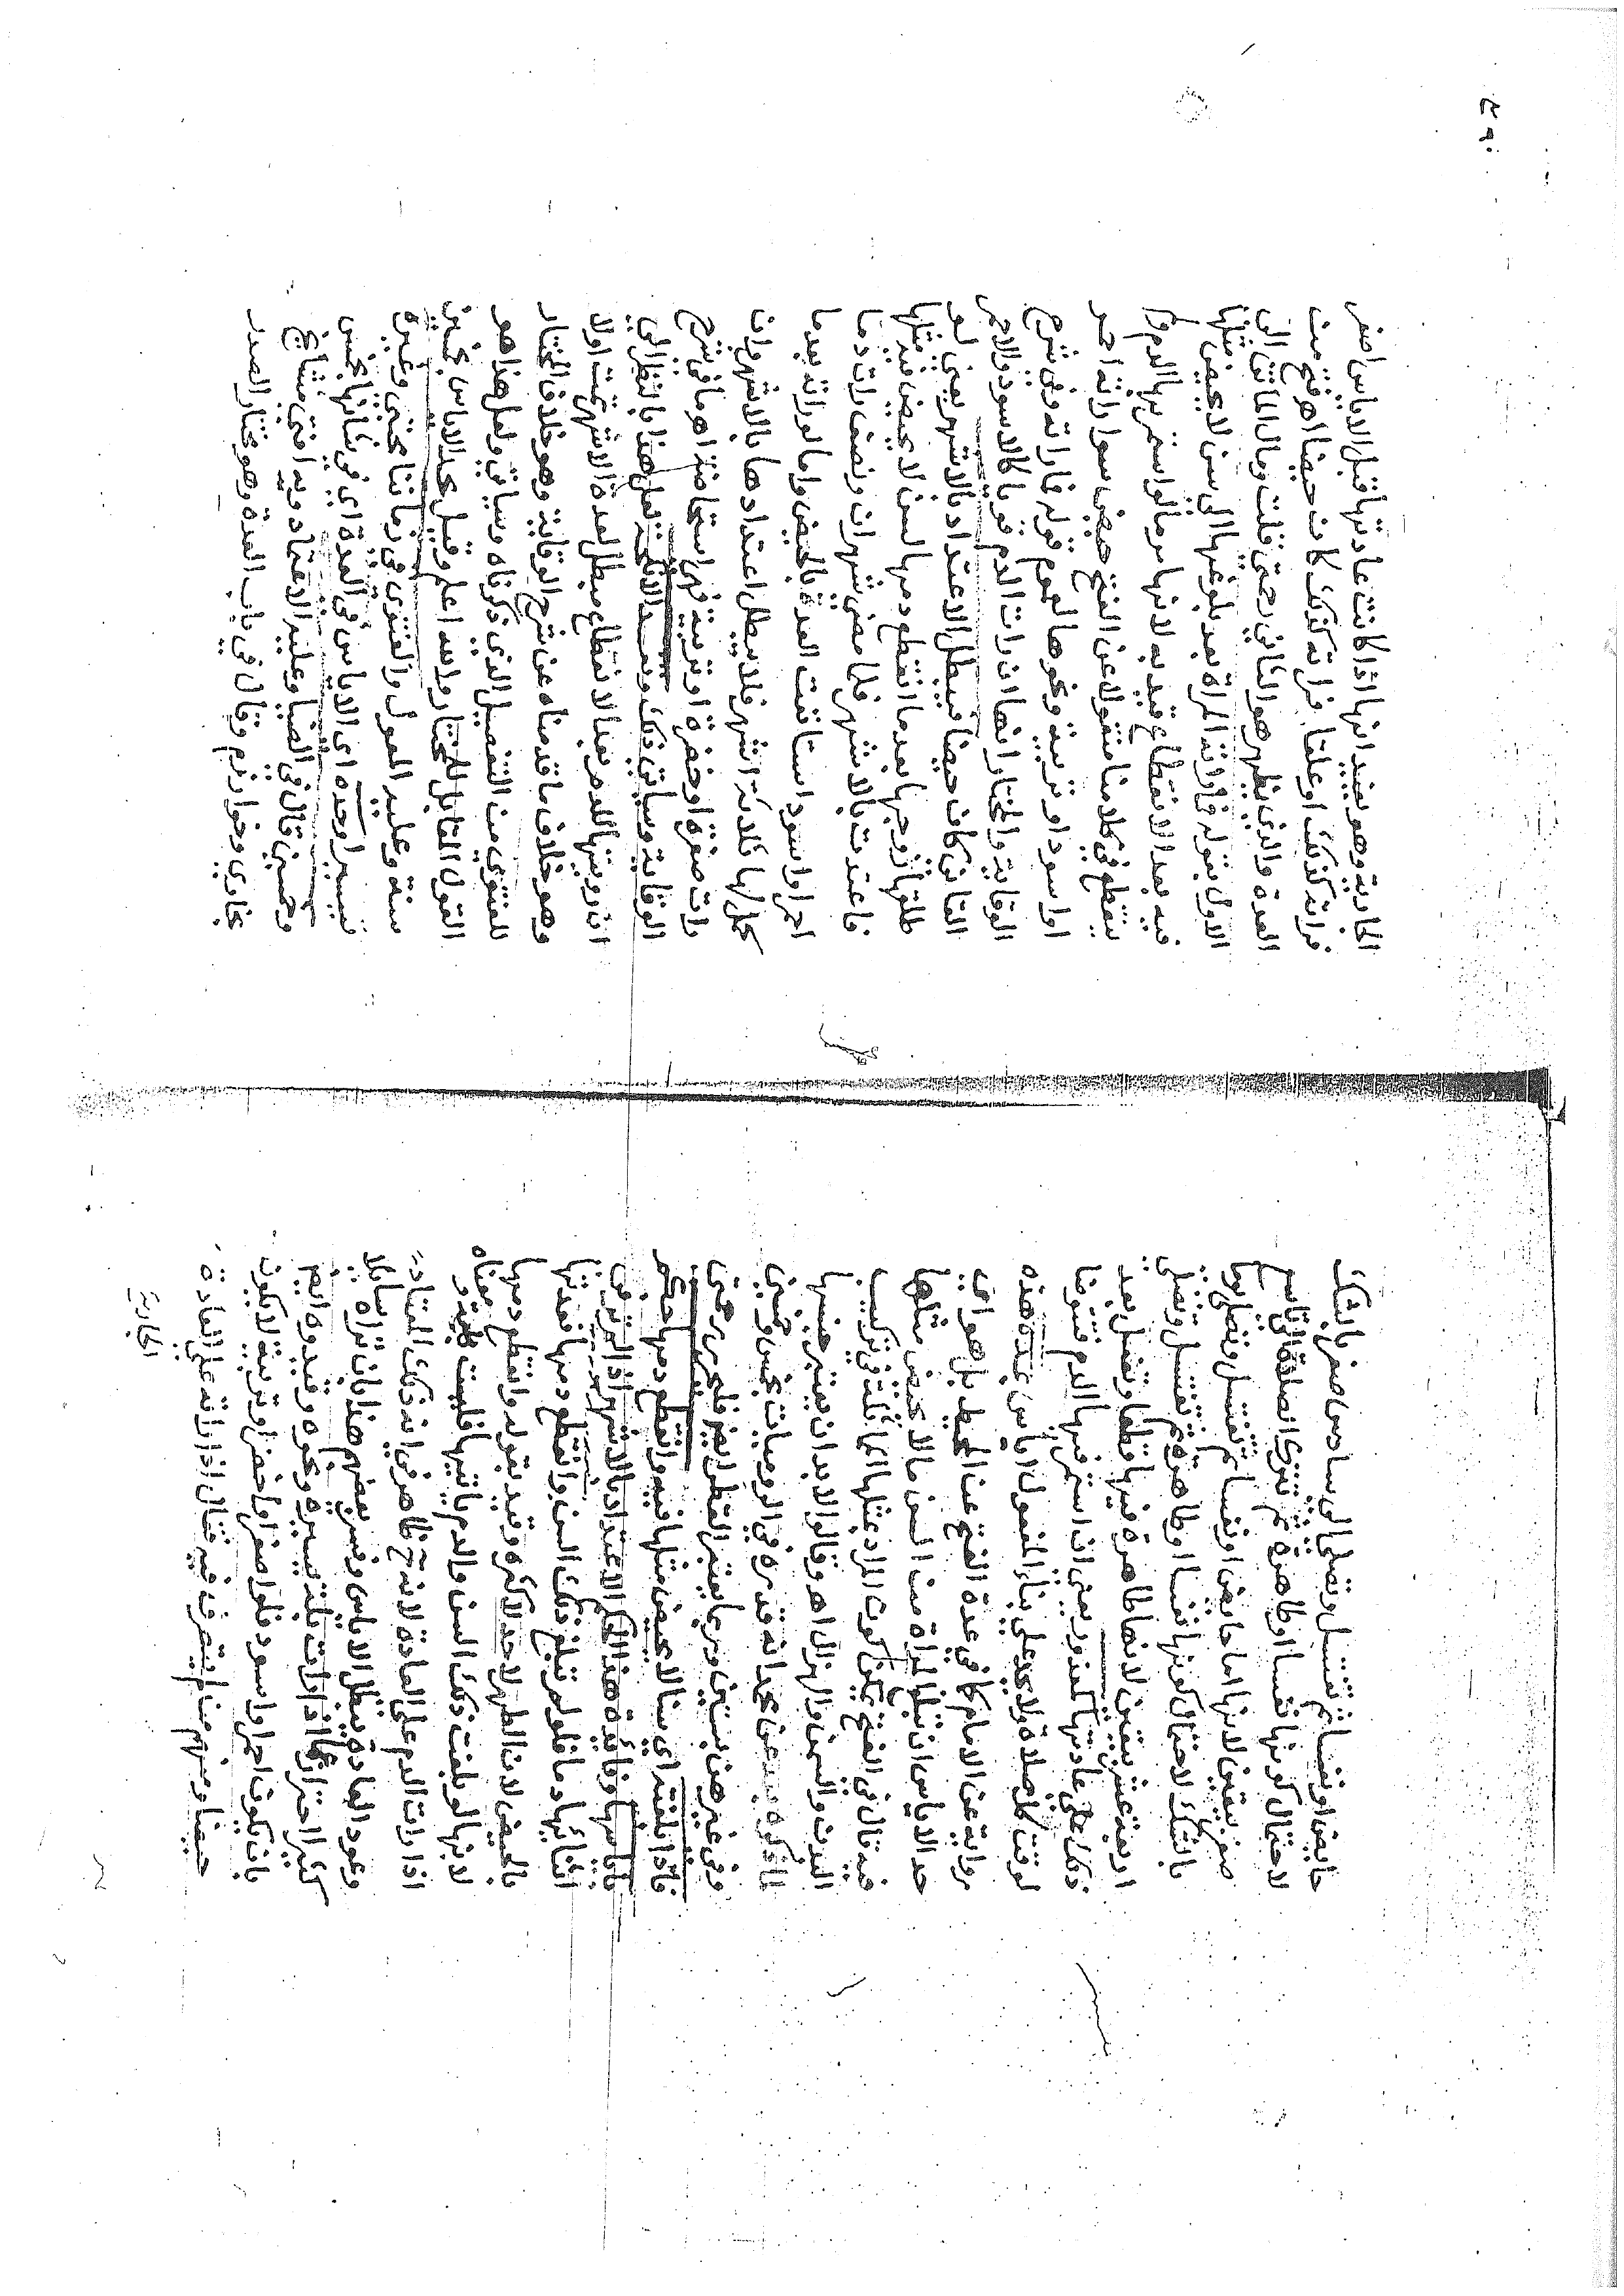 حايض او نفسا ثم تغتسل وتصلى الى سادس صفر بالشك
لاحتمال كونها نفسا او طاهرة ثم تترك الصلاة الى تاسع
صفر بيقين لانها اما حايض او نفسا ثم تغتسل وتصلي يوما
بالشك لاحتمال كونها نفسا او طاهرة ثم تغتسل وتصلى
اربعة عشر بيقين لانها طاهرة فيها قطعا وتغتسل بعد
ذلك على عادتها كمعذور يعني ان استمر فيها الدم فتتوضا
لوقت كل صلاة ولا يحد على بناء المفعول اياس بمدة وهذه
رواية عن الامام كما في عدة الفتح عن المحيط بل هو اي
حد الاياس ان تبلغ المراة من السن ما لا يحيض مثلها
فيه قال في الفتح يمكن كون المراد بمثلها المماثلة في تركيب
البدن والسمن والهزال اهـ وقالوا لا بد ان يعتبر جنسها
لما ذكره عن محمد انه قدره في الروميات بخمس وخمسين
وفي غيرهن بستين وربما يعتبر القطر ايضا فليحرر رحمتي
فاذا بلغته اي سنا لا يحيض مثلها فيه وانقطع دمها حكم
باياسها وفائدة هذا الحكم الاعتداد بالاشهر اذا لم تر في
اثنائها دما فلو لم تبلغ ذلك السن وانقطع دمها فعدتها
بالحيض لان الطهر لا حد لاكثره وقيد بقوله وانقطع دمها
لانها لو بلغت ذلك السن والدم ياتيها فليست بايسة ومعناه
اذا رات الدم على العادة لانه ح ظاهر في انه ذلك المعتاد
وعود العادة يبطل الاياس وفسر بعضهم هذا بان تراه سايلا
كثيرا احترازا عما اذا رات بلة يسيرة ونحوه وقيدوه ايضا
بان يكون احمر او اسود فلو اصفر او اخضر او تربية لا يكون
حيضا ومنهم من لم يتصرف فيه فقال اذا راته على العادة
الجارية
٢٩
الجارية وهو يفيد انها اذا كانت عادتها قبل الاياس اصفر
فراته كذلك او علقا فراته كذلك كان حيضا اهـ فتح من
العدة والذي يظهر هو الثاني رحمتي قلت ومال الماتن الى
الاول بقوله فما راته المراة بعد بلوغها الى سن لا يحيض مثلها
فيه بعد الانقطاع قيد به لانها مر ما لو استمر بها الدم ولم
ينقطع في كلامنا منقولا عن الفتح حيض سوا راته احمر
او اسود او تربية ونحوها لعموم قوله فما راته وفي شرح
الوقاية والمختار انها ان رات الدم قويا كالاسود والاحمر
القاني كان حيضا فيبطل الاعتداد بالاشهر يعني لو
طلقها زوجها بعد ما انقطع دمها لسن لا يحيض فيه مثلها
فاعتدت بالاشهر فلما مضى شهران ونصف رات دما
احمر او اسود استانفت العدة بالحيض واما لو راته بعد ما
كمل لها ثلاثة اشهر فلا يبطل اعتدادها بالاشهر وان
رات صفرة او خضرة او تربية فهي استحاضة اهـ ما في شرح
الوقاية وسياتي ذلك وتعبد الانكحة فعلى هذا بالنظر الى
ان رويتها للدم بعد الانقطاع مبطل لعدة الاشهر تمت اولا
وهو خلاف ما قدمناه عن شرح الوقاية وهو خلاف المختار
للفتوى من التفصيل الذي ذكرناه وسياتي ولعل هذا هو
القول المقابل للمختار والله اعلم وقيل يحد الاياس بخمسين
سنة وعليه المعول والفتوى في زماننا مجتبى وغيره
تيسيرا وحده اى الاياس في العدة اي في شانها بخمس
وخمسين قال في الضيا وعليه الاعتماد وبه افتى مشايخ
بخارى وخوارزم وقال في باب العدة وهو مختار الصدر